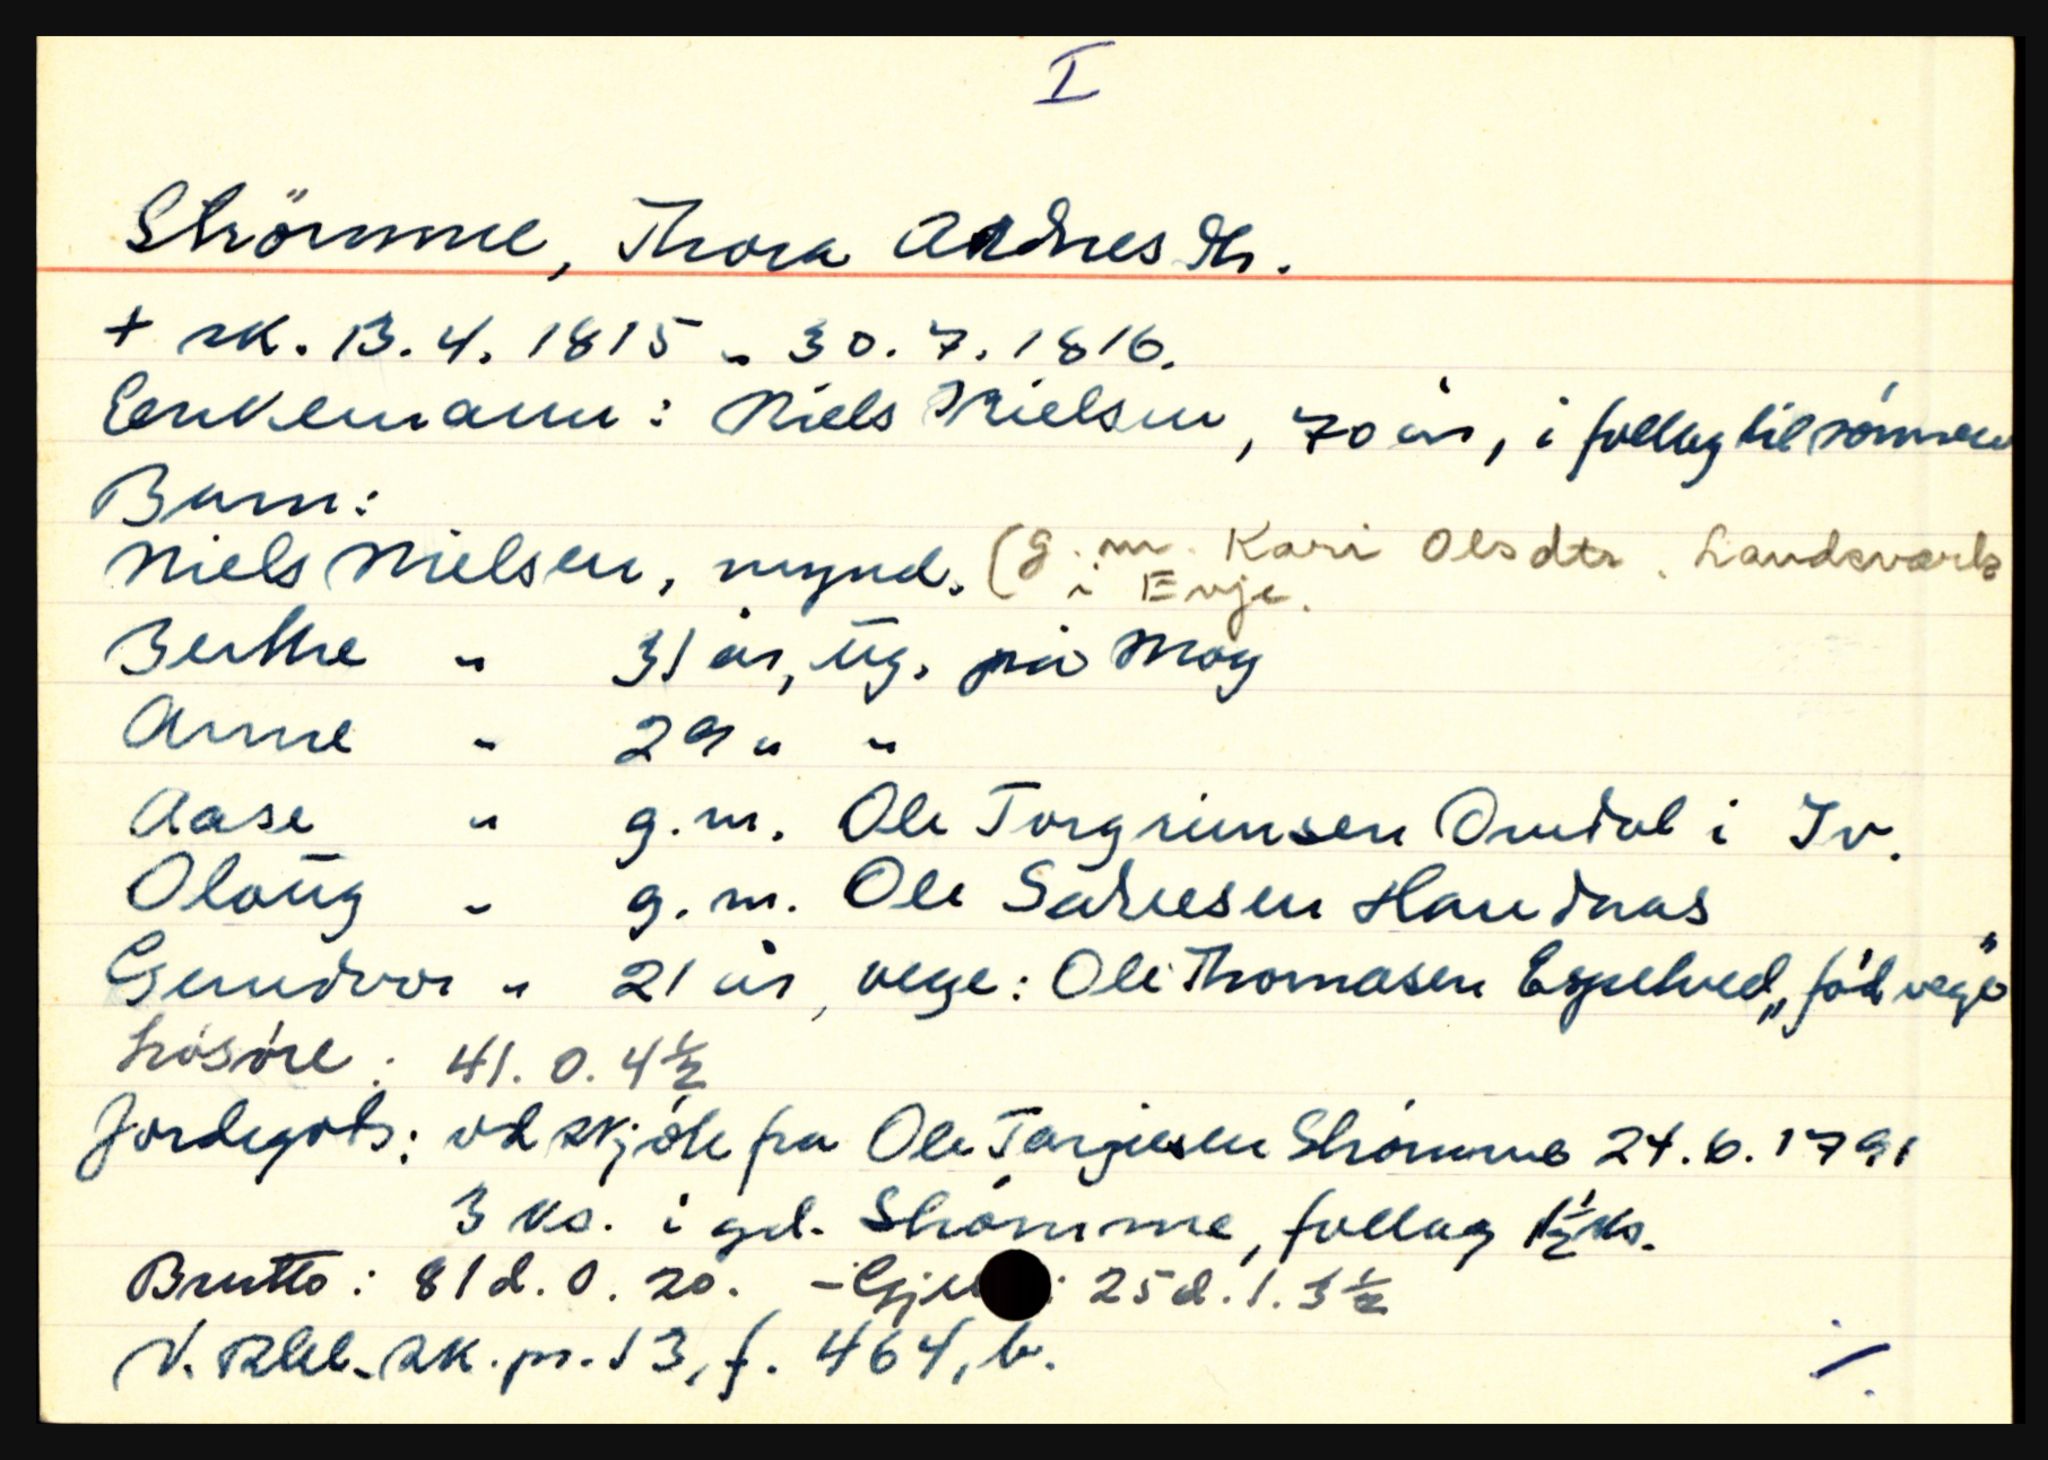 I
Strömme, Thora Andresdtr.
+ sk. 13.4.1815 - 30.7.1816.
Enkemann: Niels Nielsen, 70 år, i follag til sönnen
Barn:
Niels Nielsen, mynd. (g.m. Kari Olsdtr. Landsverk
i Evje.
Berthe " 31 år, ug. på Moy
Anne " 29 " "
Aase " g.m. Ole Torgrimsen Omdal i Iv.
Oloug " g.m. Ole Salvesen Haudnas
Gundvor " 21 år, verge: Ole Thomasen Espetved, "föd verge"
Lösöre: 41.0.4½
Jordegods: ved skjöte fra Ole Targiesen Strömme 24.6.1791
3 ks. i gd. Strömme, follag 1½ ks.
Brutto: 81 d. 0. 20. - Gje : 25 d. 1. 3½
V. Rbl. sk. pr. 13, f. 464, b.
./.